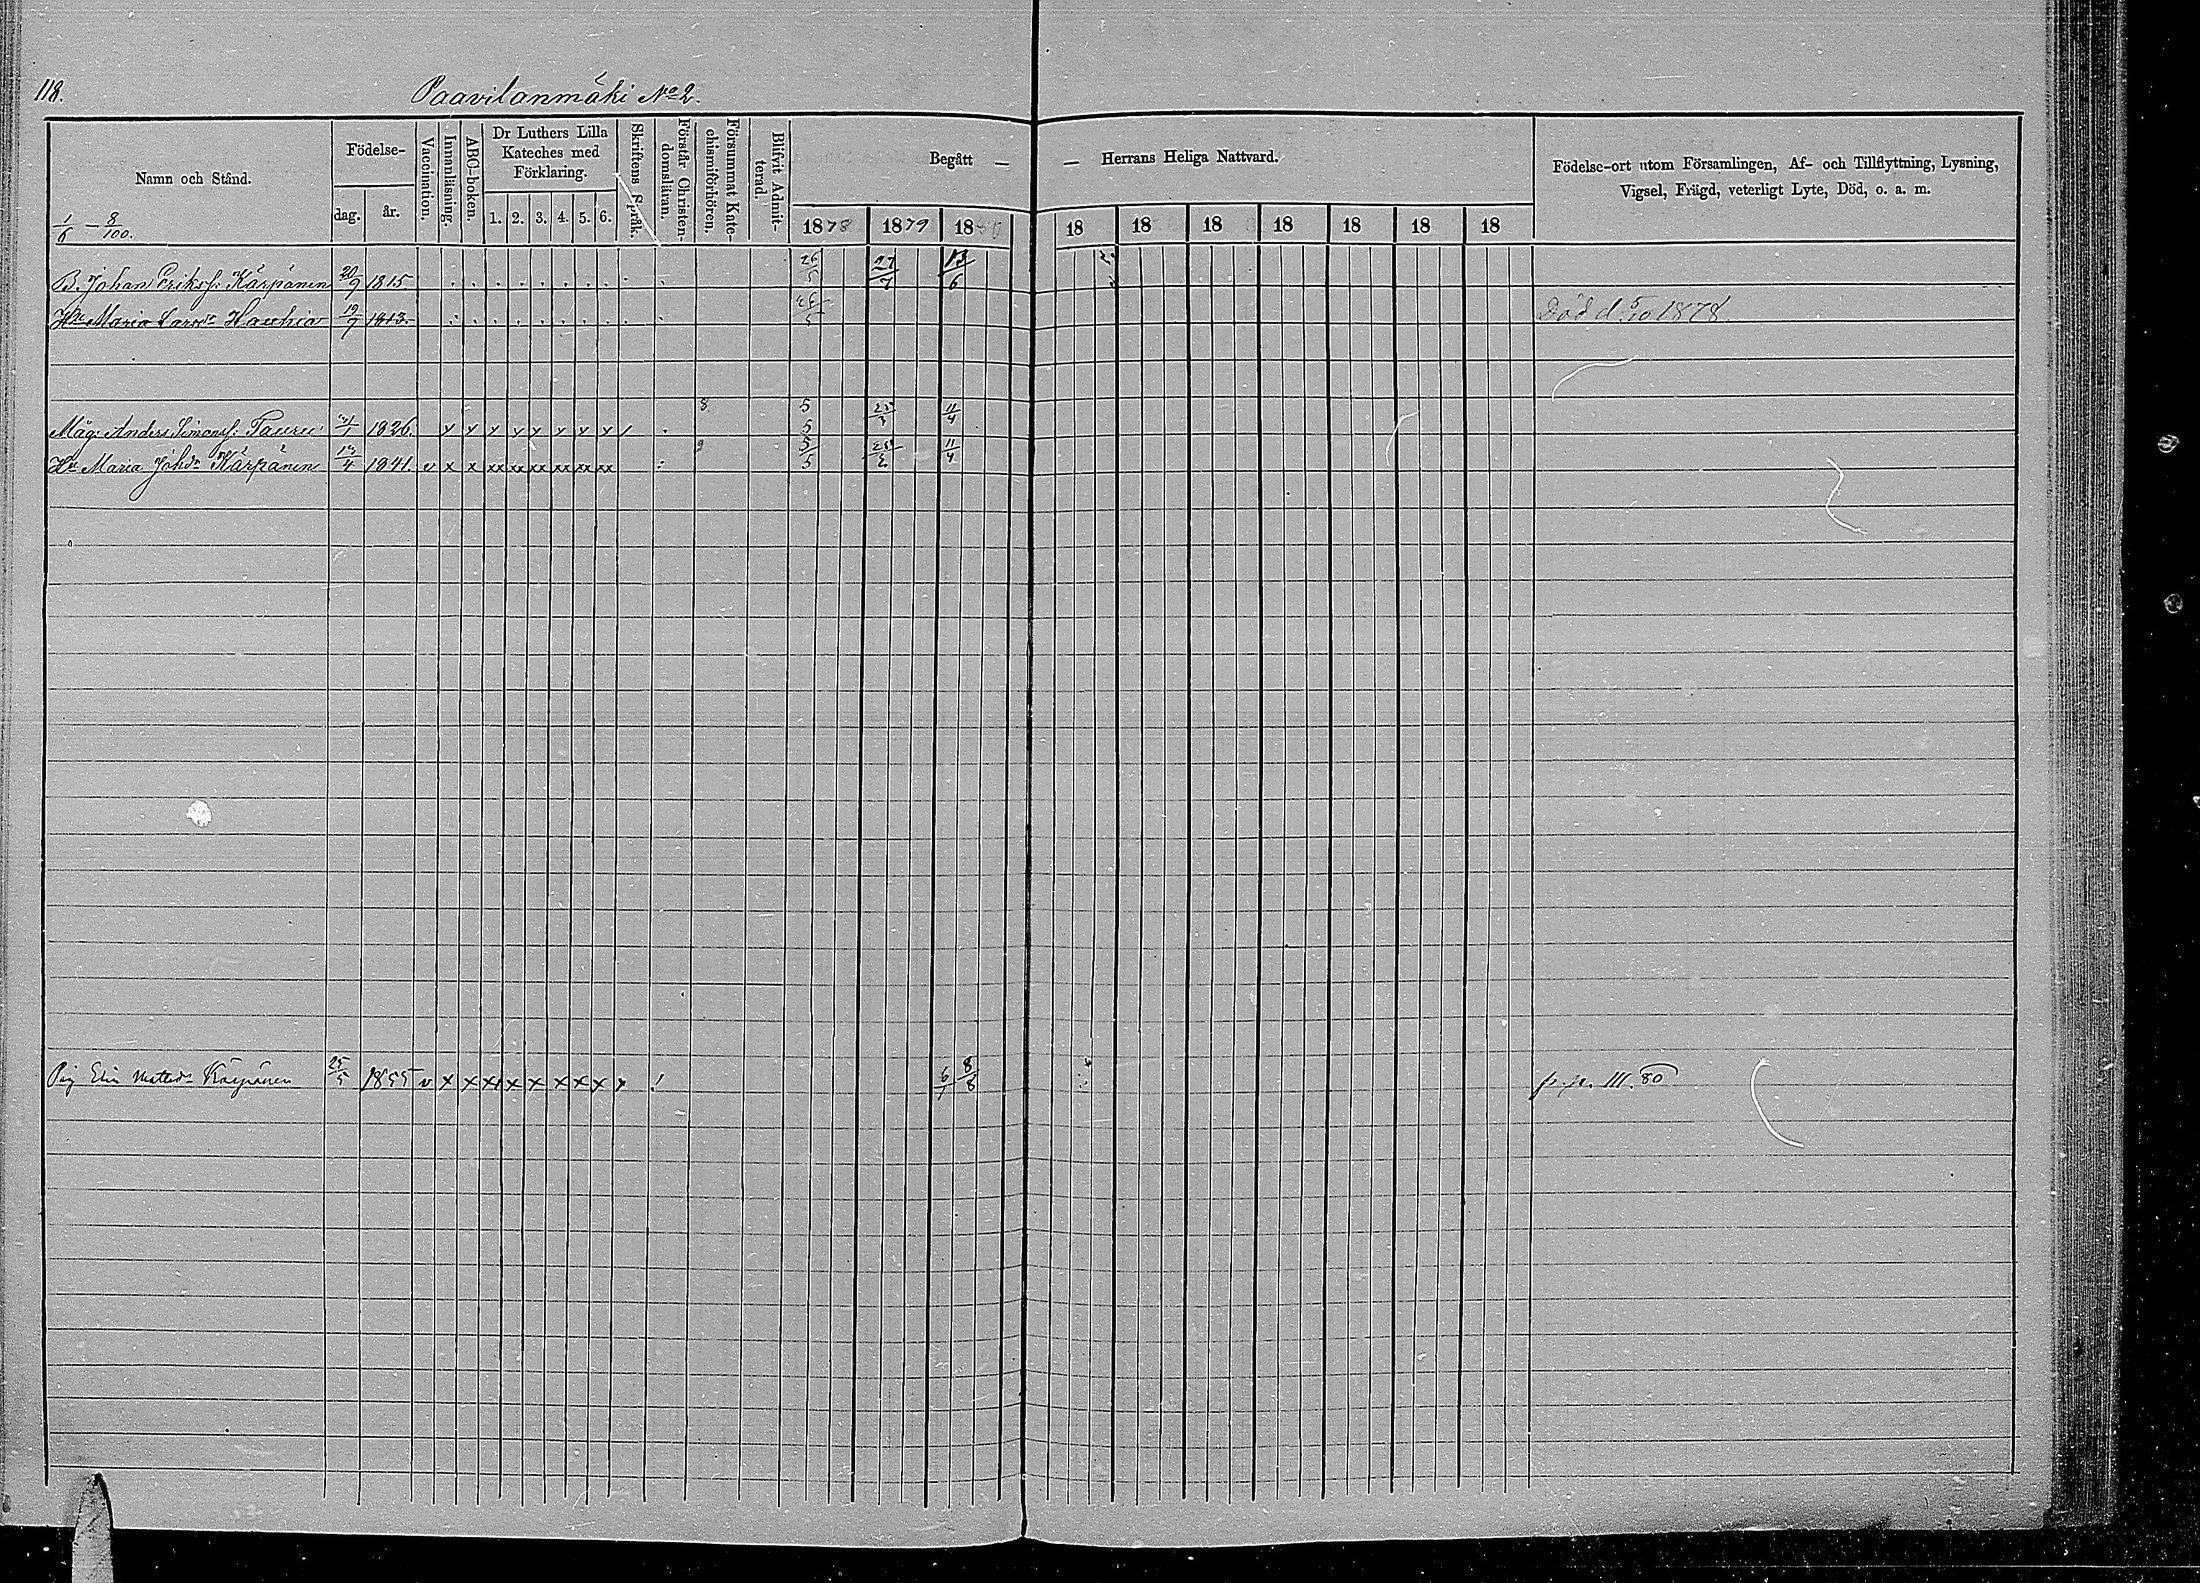 118.
Paavilanmäki No 2.
Namn och Stånd.
Födelse-
dag.
år.
Vaccination.
Innanläsning.
ABC-boken.
Dr Luthers Lilla
Kateches med
Förklaring.
1. 2. 3. 4. 5. 6.
Skriftens Språk.
Förstår Christen-
domsläran.
Försummat Kate-
chismiförhören.
Blifvit Admit-
terad.
Begått —
— Herrans Heliga Nattvard.
1878 1879 18 18 18 18 18 18 18 18
Födelse-ort utom Församlingen, Af- och Tillflyttning, Lysning,
Vigsel, Frägd, veterligt Lyte, Död, o. a. m.
1/6 — 8/100.
B. Johan Eriksf. Kärpänen 20/9 1815 26/5 27/7 13/6
Hu Maria Larsdr Hauhia 19/9 1813. 26/5 Död d. 5/10 1878.
Måg. Anders Simonsf. Tauru 1826. x x x x x x x x 8 5/5 11/4
Hu Maria Johdr Kärpänen 4 1841. v x x xx xx xx xx xx xx 9 5/5 11/4
Pig Elin Mattsdr Kärpänen 25/5 1855 v x x x x x x x x x 6/1 8/8 III. 80